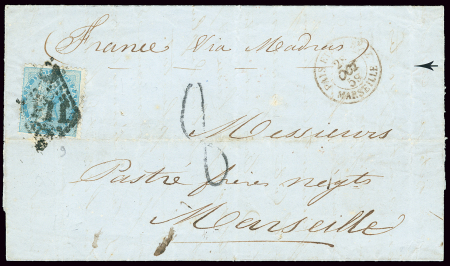 France Via Madras
OCT
MARSEILLE
8
Messieurs
Pastré frères negts
Marseille